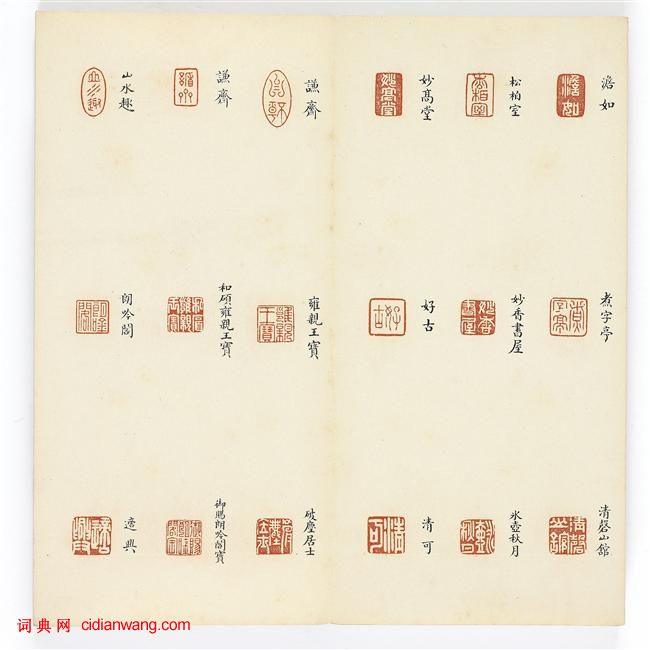 澹如
松柏室
妙高堂
煮字亭
妙香書屋
好古
清磬山館
冰壺秋月
清可
謙齋
謙齋
山水趣
雍親王寶
和碩雍親王寶
朗吟閣
破塵居士
御賜朗吟閣寶
適興
词典网 cidianwang.com